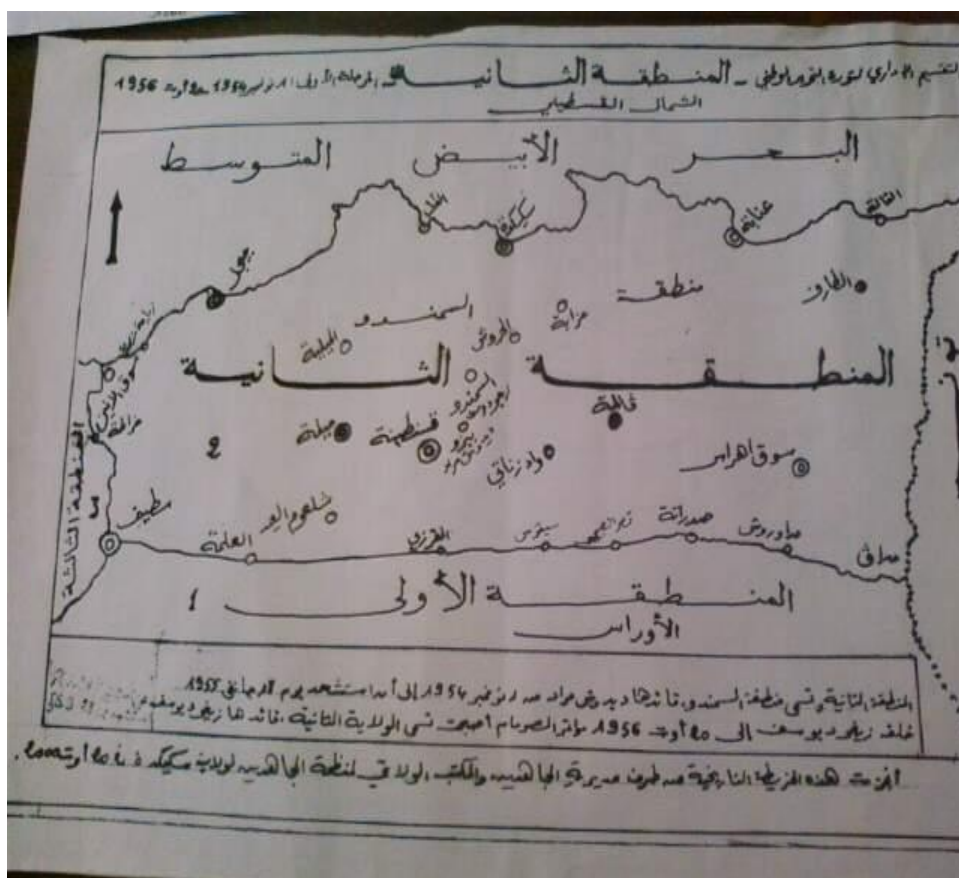 التقسيم الإداري لثورة التحرير الوطني - المنطقة الثانية المرحلة الأولى 1 نوفمبر 1954 - 20 أوت 1956
الشمال القسنطيني
البحر الأبيض المتوسط
القالة
عنابة
سكيكدة
القل
جيجل
الطارف
منطقة السمندو
عزابة
الحروش
الميلية
المنطقة الثانية
سوق الاثنين
السمندو
زيغود يوسف
قالمة
قسنطينة
ميلة
2
واد زناتي
سوق اهراس
المنطقة الثالثة
3
سطيف
شلغوم العيد
العلمة
سيقوس
صدراتة
مداوروش
المنطقة الأولى 1
الأوراس
المنطقة الثانية وتسمى منطقة السمندو، قائدها ديدوش مراد من نوفمبر 1954 إلى أن استشهد يوم 18 جانفي 1955
خلفه زيغود يوسف إلى 20 أوت 1956 مؤتمر الصومام أصبحت تسمى الولاية الثانية، قائدها زيغود يوسف
أنجزت هذه الخريطة التاريخية من طرف مديرية المجاهدين والمكتب الولائي لمنظمة المجاهدين لولاية سكيكدة في 20 أوت 2000.